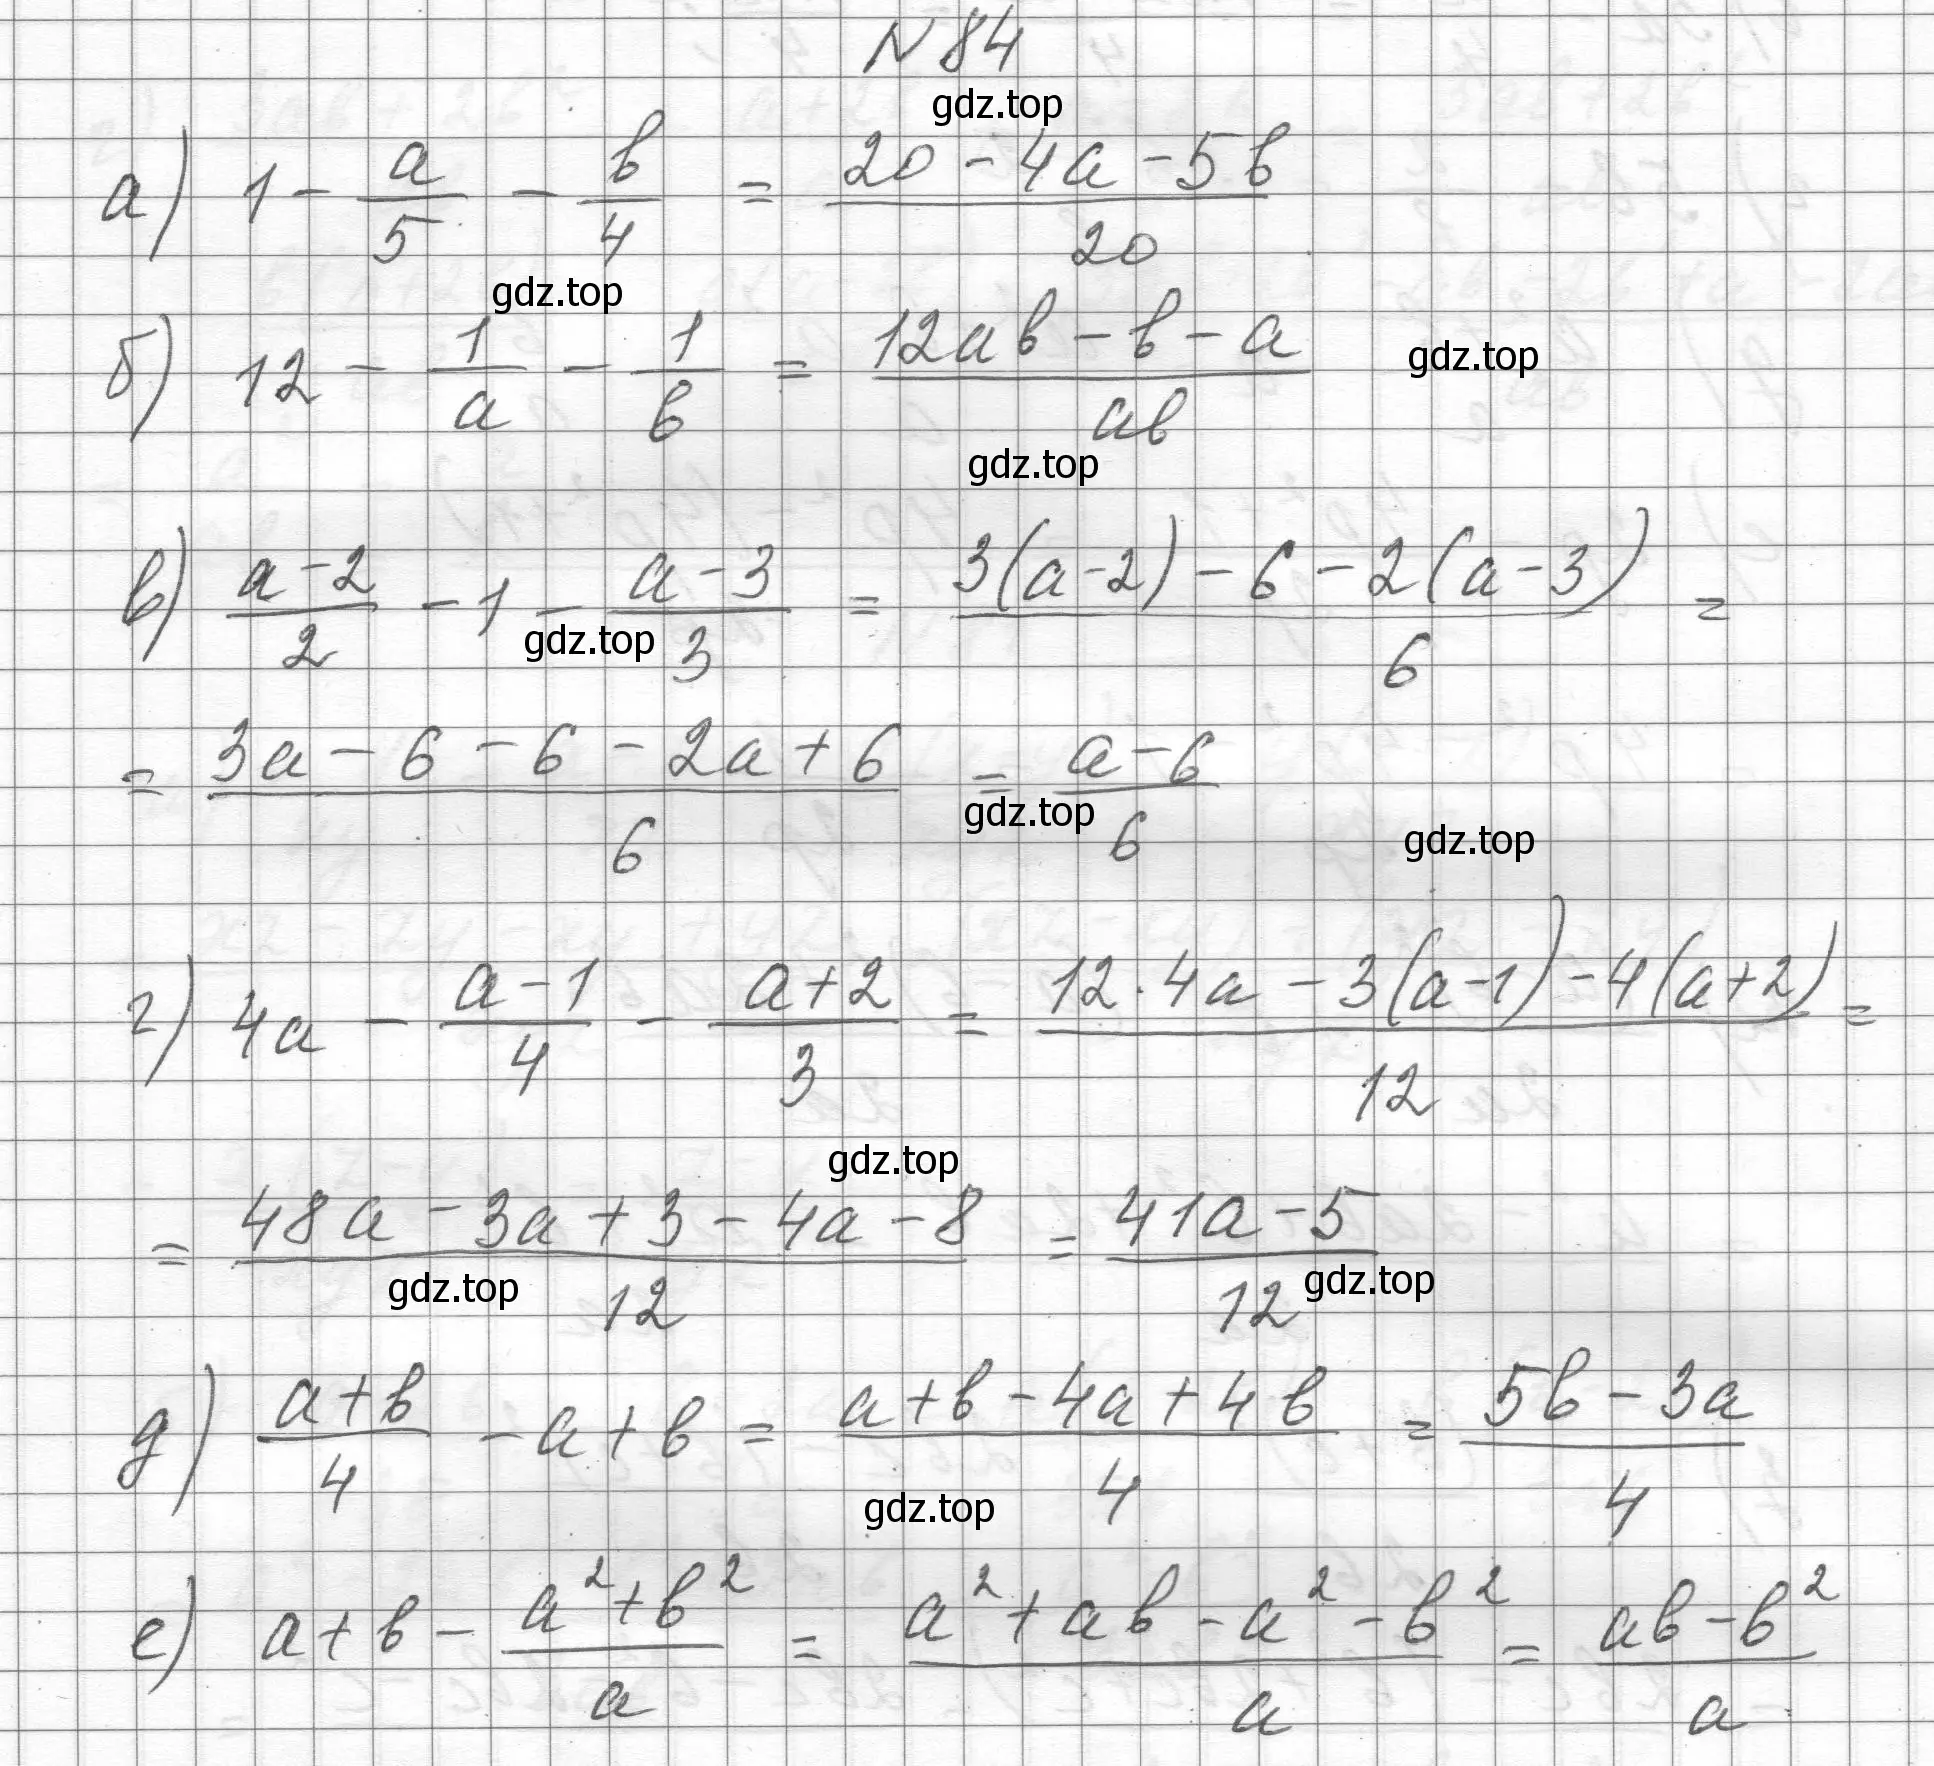 N84
gdz.top
а) 1 - a/5 - b/4 = (20 - 4a - 5b)/20
gdz.top
б) 12 - 1/a - 1/b = (12ab - b - a)/ab
gdz.top
gdz.top
в) (a-2)/2 - 1 - (a-3)/3 = (3(a-2) - 6 - 2(a-3))/6 =
gdz.top
= (3a - 6 - 6 - 2a + 6)/6 = (a-6)/6
gdz.top
gdz.top
г) 4a - (a-1)/4 - (a+2)/3 = (12·4a - 3(a-1) - 4(a+2))/12 =
gdz.top
= (48a - 3a + 3 - 4a - 8)/12 = (41a - 5)/12
gdz.top
gdz.top
д) (a+b)/4 - a + b = (a + b - 4a + 4b)/4 = (5b - 3a)/4
gdz.top
е) a + b - (a²+b²)/a = (a² + ab - a² - b²)/a = (ab - b²)/a